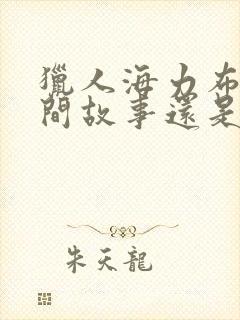 獵人海力布
間故事還是
朱天龍